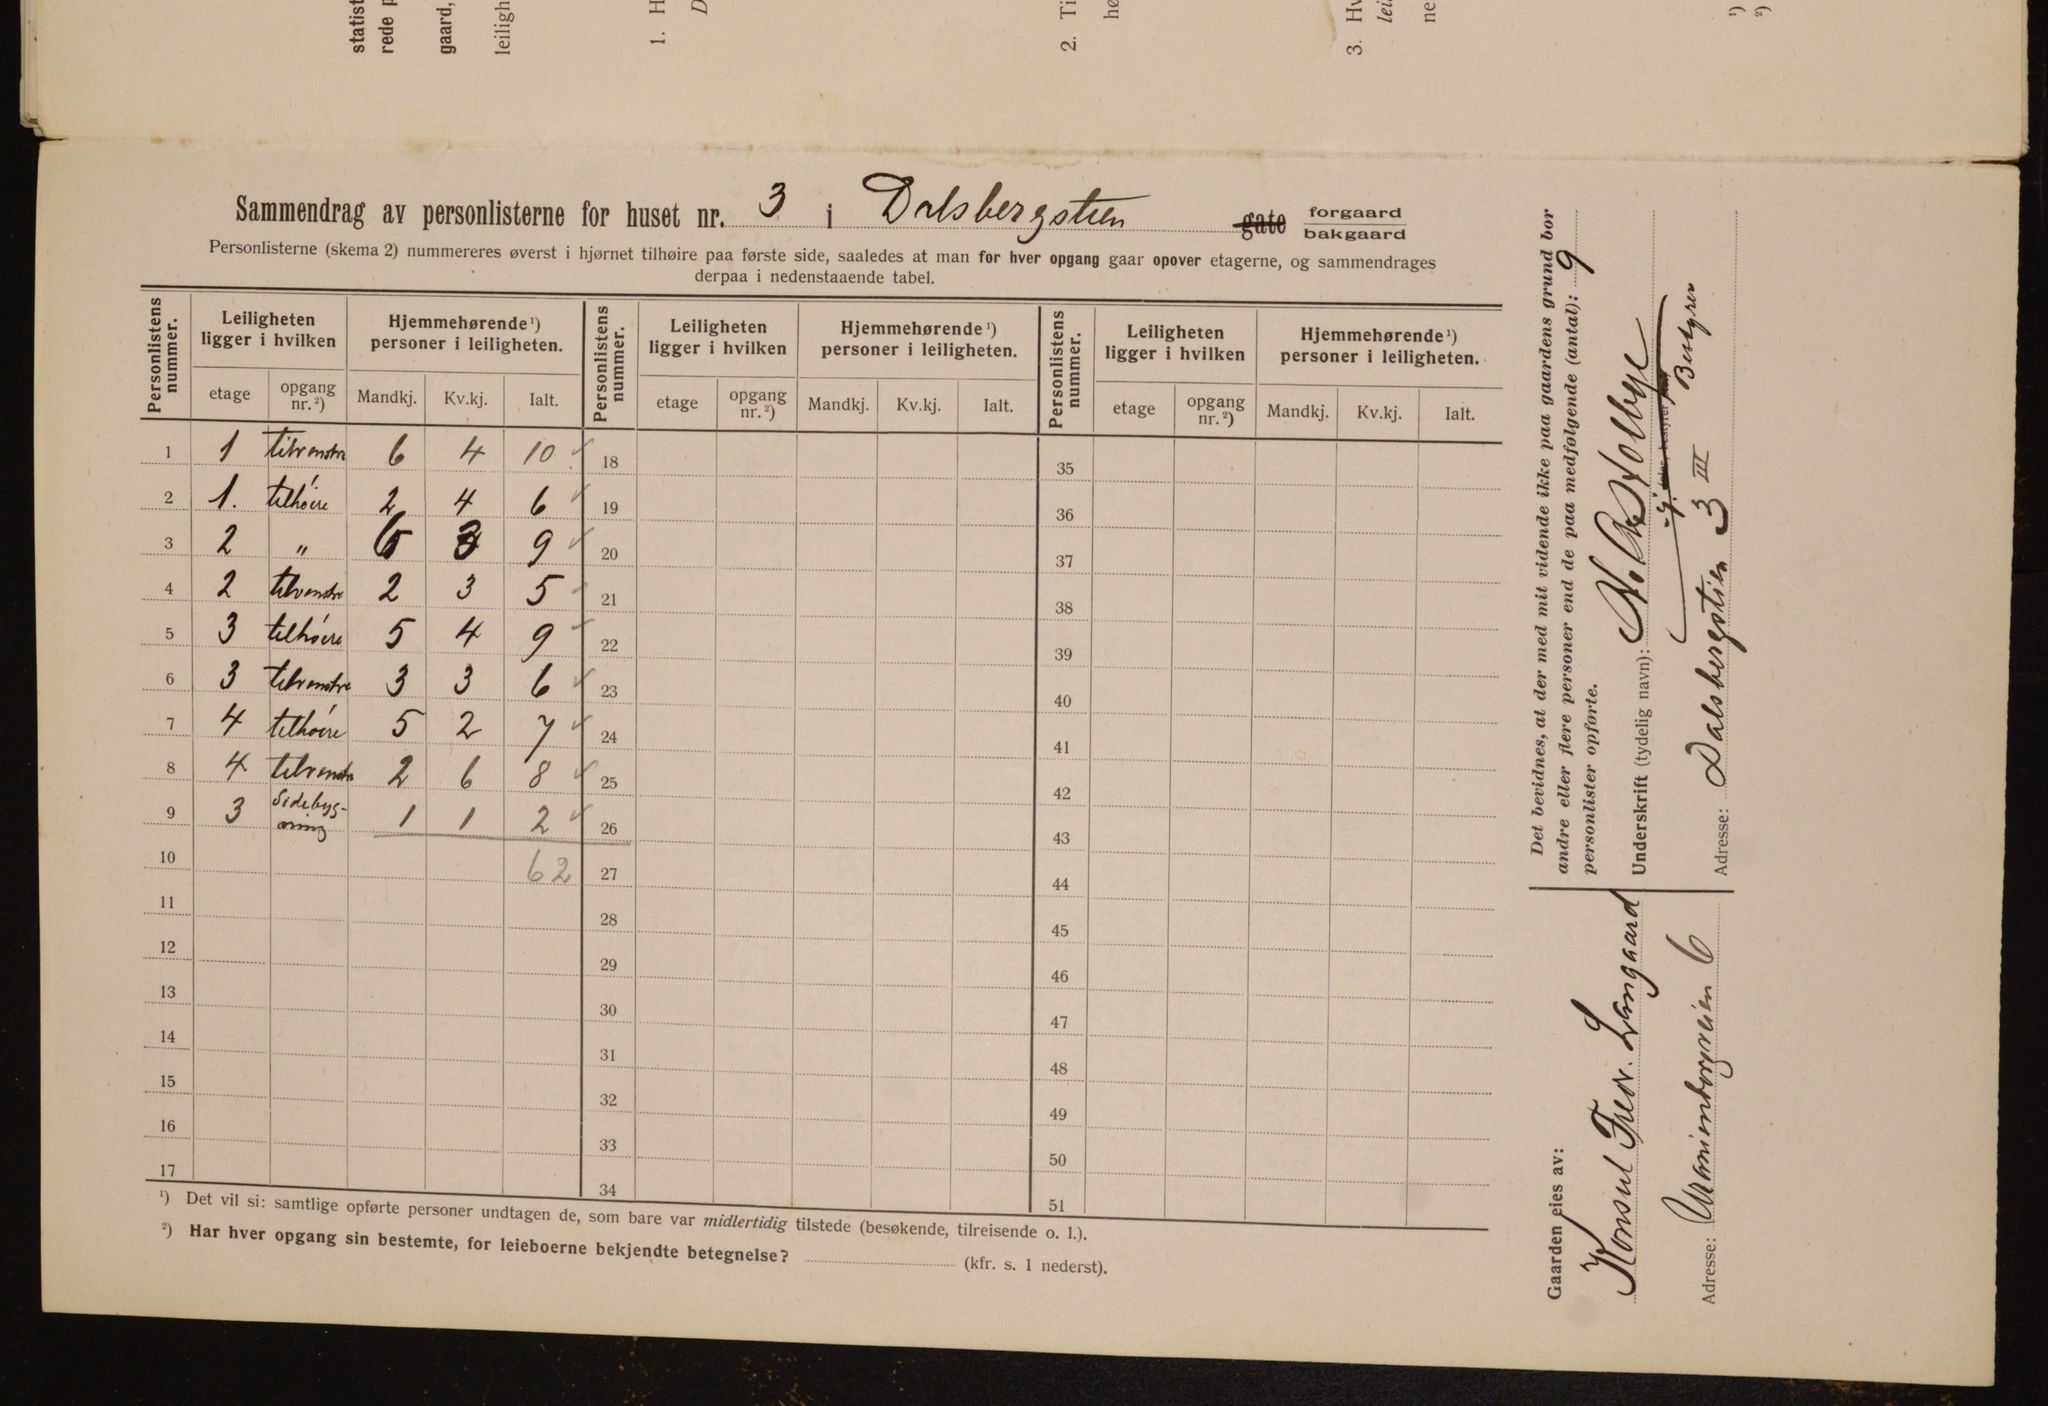 statist
rede p
gaard,
leiligh
1. H
D
2. Ti
hø
3. Hv
leil
ne
¹)
²)
Sammendrag av personlisterne for huset nr. 3 i Dalsbergstien gate forgaard bakgaard
Personlisterne (skema 2) nummereres øverst i hjørnet tilhøire paa første side, saaledes at man for hver opgang gaar opover etagerne, og sammendrages
derpaa i nedenstaaende tabel.
Personlistens nummer. | Leiligheten ligger i hvilken | Hjemmehørende¹) personer i leiligheten. | Personlistens nummer. | Leiligheten ligger i hvilken | Hjemmehørende¹) personer i leiligheten. | Personlistens nummer. | Leiligheten ligger i hvilken | Hjemmehørende¹) personer i leiligheten.
etage | opgang nr.²) | Mandkj. | Kv.kj. | Ialt. | etage | opgang nr.²) | Mandkj. | Kv.kj. | Ialt. | etage | opgang nr.²) | Mandkj. | Kv.kj. | Ialt.
1 | 1 | tilvenstre | 6 | 4 | 10 ✓ | 18 | 35
2 | 1. | tilhøire | 2 | 4 | 6 ✓ | 19 | 36
3 | 2 | „ | 6 | 3 | 9 ✓ | 20 | 37
4 | 2 | tilvenstre | 2 | 3 | 5 ✓ | 21 | 38
5 | 3 | tilhøire | 5 | 4 | 9 ✓ | 22 | 39
6 | 3 | tilvenstre | 3 | 3 | 6 ✓ | 23 | 40
7 | 4 | tilhøire | 5 | 2 | 7 ✓ | 24 | 41
8 | 4 | tilvenstre | 2 | 6 | 8 ✓ | 25 | 42
9 | 3 | Sidebyg-ning | 1 | 1 | 2 ✓ | 26 | 43
10 | 62 | 27 | 44
11 | 28 | 45
12 | 29 | 46
13 | 30 | 47
14 | 31 | 48
15 | 32 | 49
16 | 33 | 50
17 | 34 | 51
¹) Det vil si: samtlige opførte personer undtagen de, som bare var midlertidig tilstede (besøkende, tilreisende o. l.).
²) Har hver opgang sin bestemte, for leieboerne bekjendte betegnelse? (kfr. s. 1 nederst).
Gaarden eies av:
Konsul Fredr. Langaard
Adresse: Uranienborgveien 6
Det bevidnes, at der med mit vidende ikke paa gaardens grund bor
andre eller flere personer end de paa medfølgende (antal): 9
personlister opførte.
Underskrift (tydelig navn): Holbye
Bestyrer
Adresse: Dalsbergstien 3 III